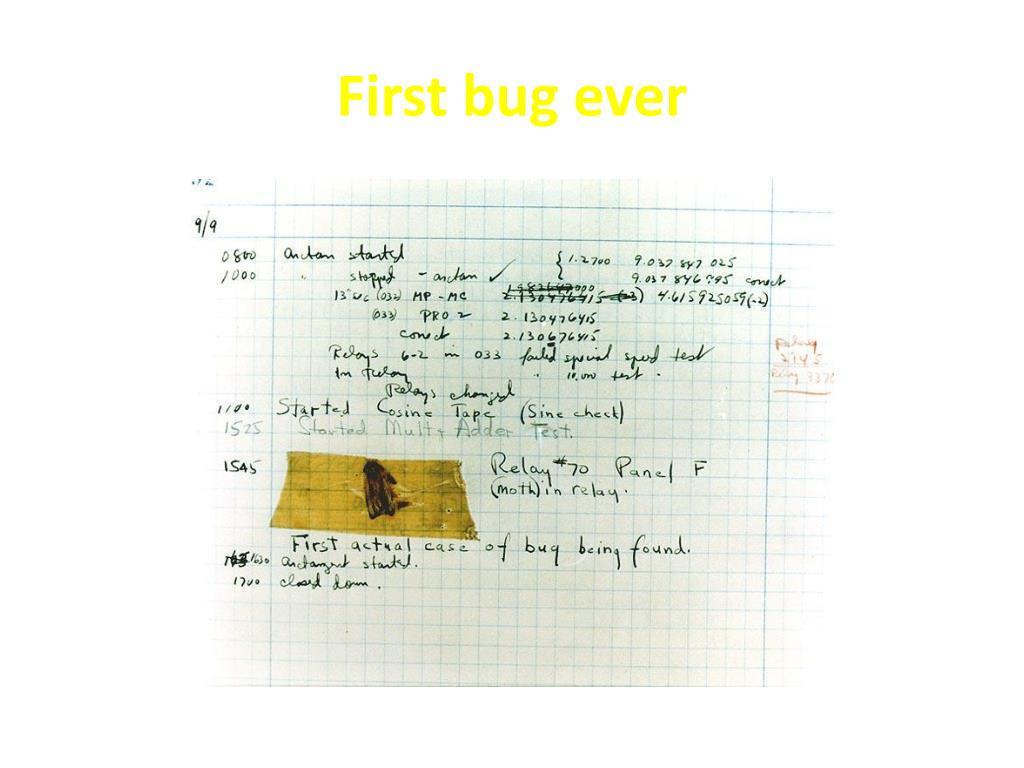 First bug ever
9/9
0800 Antan started
1000 " stopped - antan ✓ { 1.2700 9.037 847 025
9.037 846 995 conect
13"uc (032) MP - MC 2.130476415 (-3) 4.615925059(-2)
(033) PRO 2 2.130476415
conect 2.130676415
Relays 6-2 in 033 failed special speed test
In relay " 10.000 test .
Relays changed
1100 Started Cosine Tape (Sine check)
1525 Started Mult+ Adder Test.
1545 Relay #70 Panel F
(moth) in relay.
First actual case of bug being found.
1630 antangent started.
1700 closed down.
Relay
2145
Relay 3370